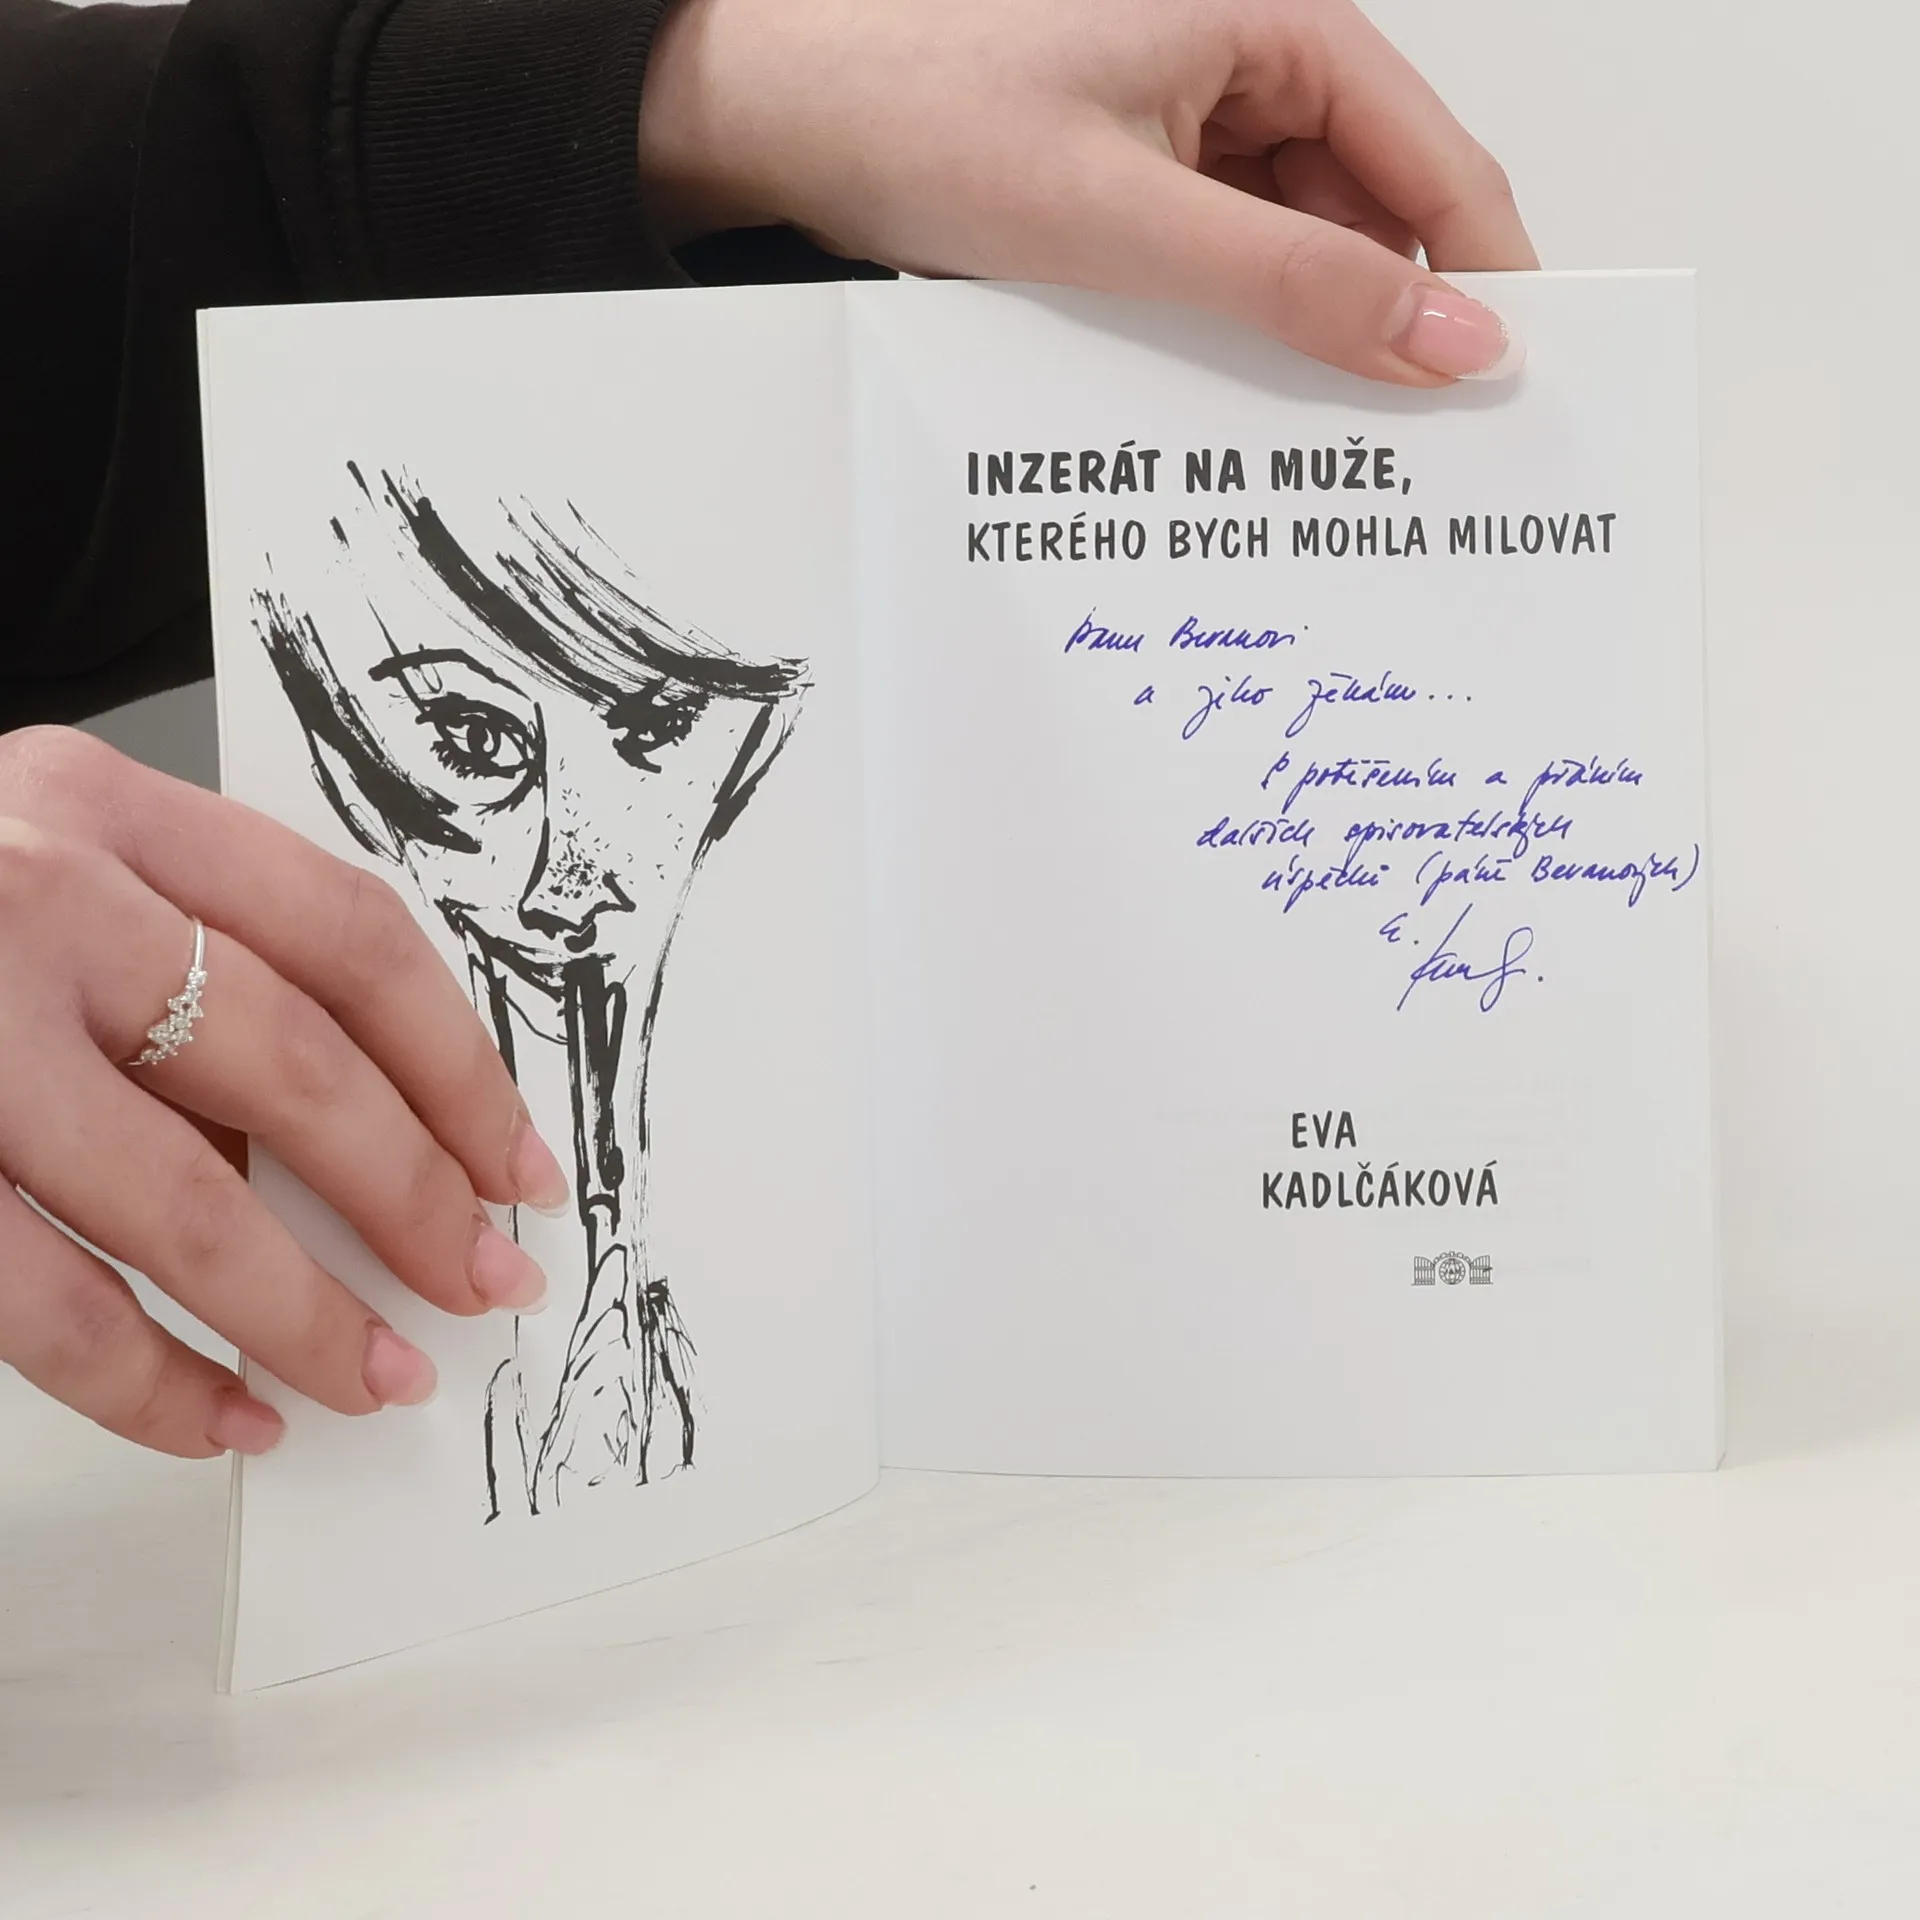 INZERÁT NA MUŽE,
KTERÉHO BYCH MOHLA MILOVAT
Panu Bevanovi
a jeho
S potěšením a přáním
dalších spisovatelských
úspěchů (páně Bevanových)
E.
EVA
KADLČÁKOVÁ